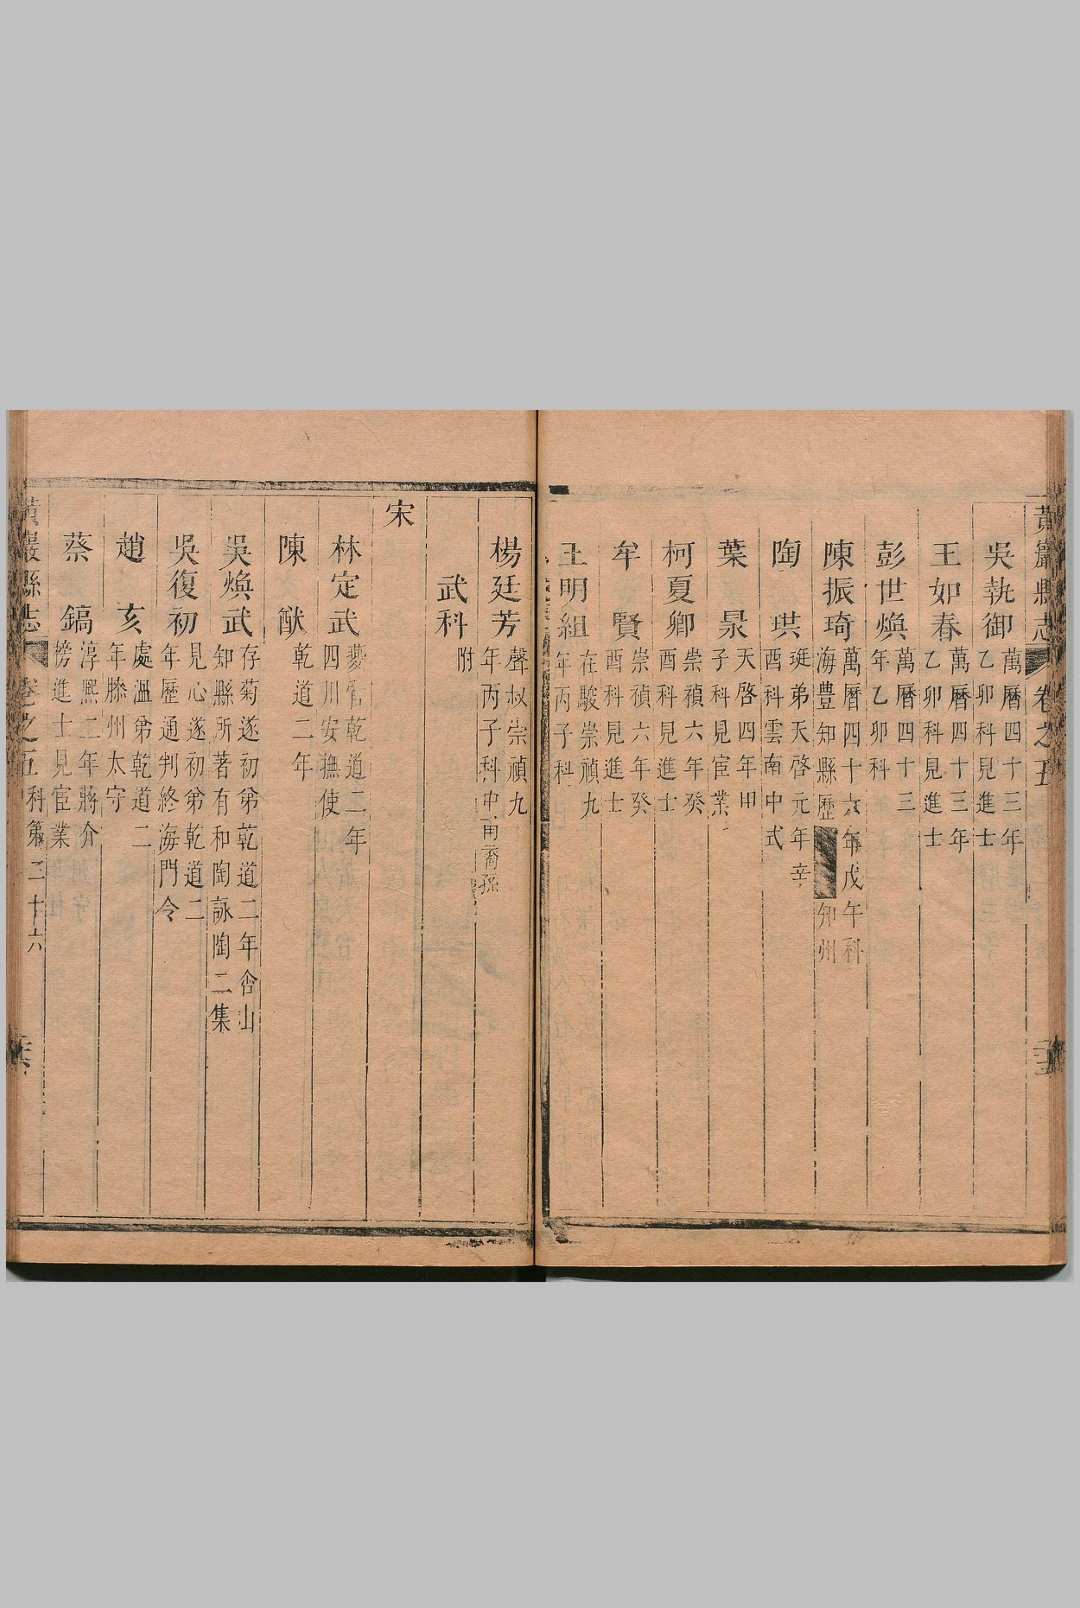 黃巖縣志 卷之五
吳執御 萬曆四十三年乙卯科見進士
王如春 萬曆四十三年乙卯科見進士
彭世煥 萬曆四十三年乙卯科
陳振琦 萬曆四十六年戊午科海豊知縣歷 知州
陶珙 珽弟天啓元年辛酉科雲南中式
葉泉 天啓四年甲子科見宦業
柯夏卿 崇禎六年癸酉科見進士
牟賢 崇禎六年癸酉科見進士
王明組 在駿崇禎九年丙子科
楊廷芳 聲叔崇禎九年丙子科中
武科 附
宋
林定武 乾道二年四川安撫使
陳猷 乾道二年
吳煥武 存菊遂初弟乾道二年含山知縣所著有和陶詠陶二集
吳復初 見心遂初弟乾道二年歷通判終海門令
趙亥 處溫弟乾道二年滕州太守
蔡鎬 淳熙二年蔣介榜進士見宦業
科第二十六
黃巖縣志 卷之五